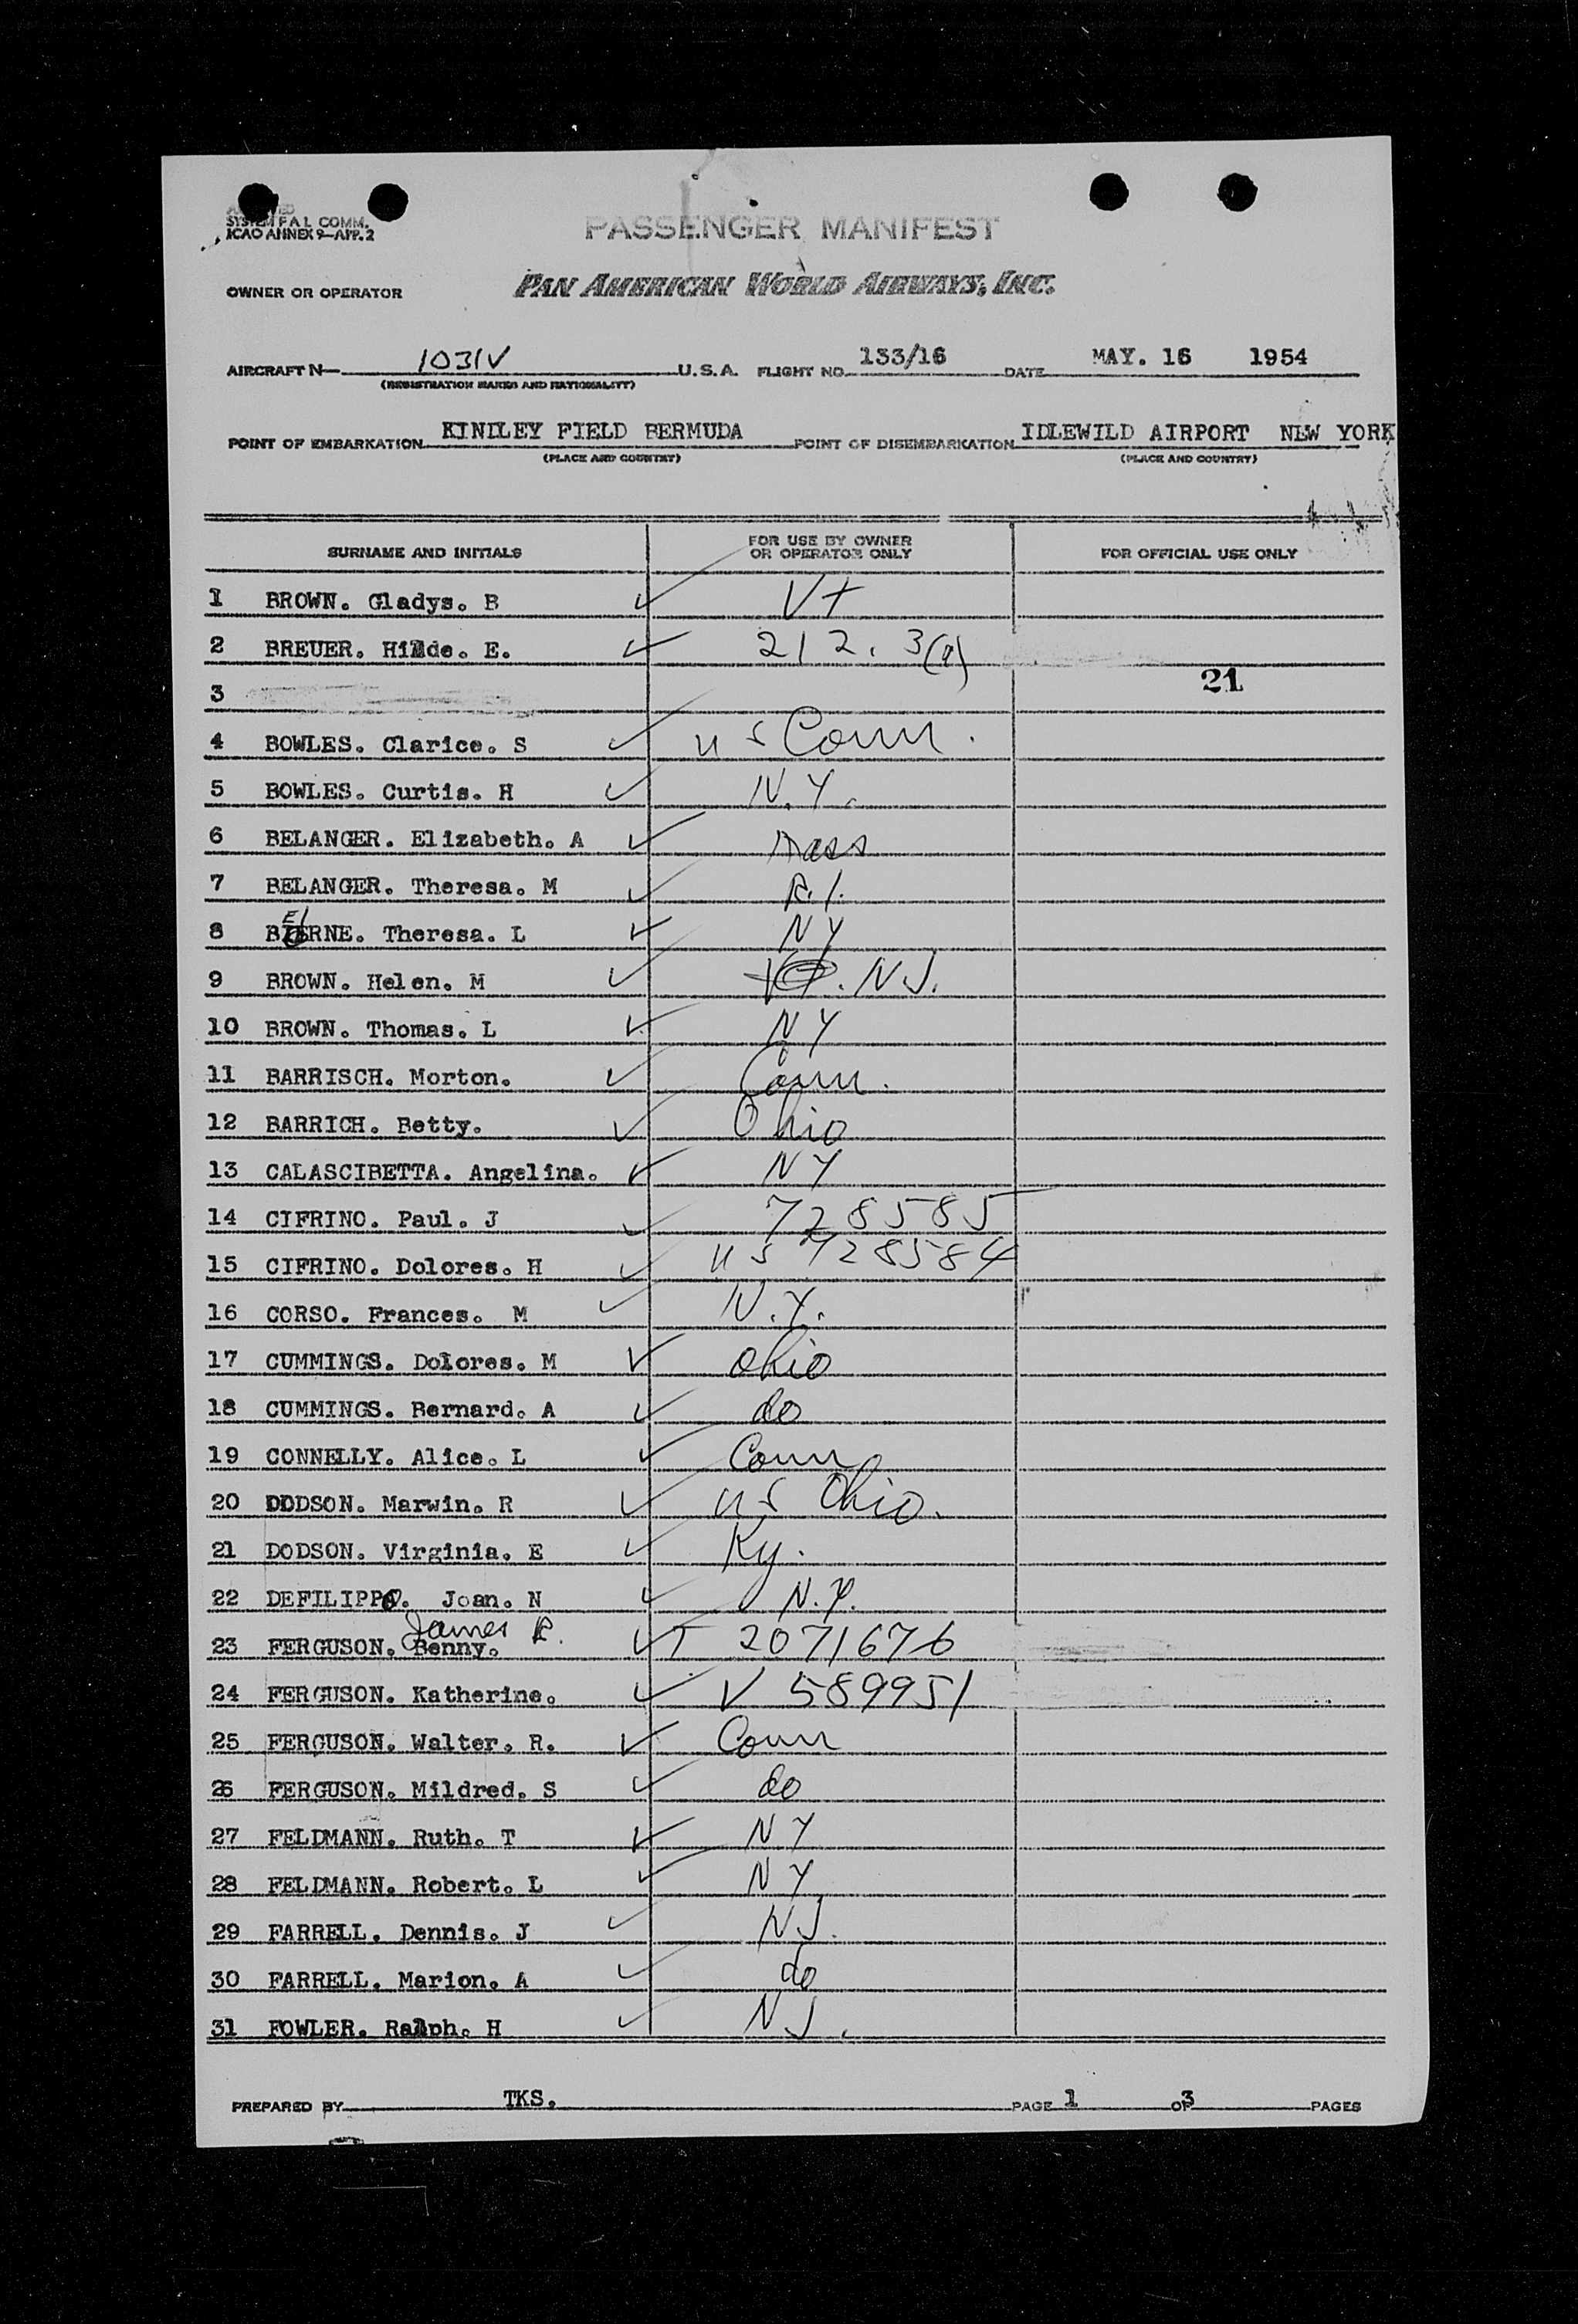 SYSTEM F.A.L. COMM.
ICAO ANNEX 9—APP. 2
PASSENGER MANIFEST
OWNER OR OPERATOR PAN AMERICAN WORLD AIRWAYS, INC.
AIRCRAFT N— 1031V U.S.A. FLIGHT NO. 133/16 DATE MAY. 16 1954
(REGISTRATION MARKS AND NATIONALITY)
POINT OF EMBARKATION KINDLEY FIELD BERMUDA POINT OF DISEMBARKATION IDLEWILD AIRPORT NEW YORK
(PLACE AND COUNTRY) (PLACE AND COUNTRY)
SURNAME AND INITIALS FOR USE BY OWNER OR OPERATOR ONLY FOR OFFICIAL USE ONLY
1 BROWN. Gladys. B ✓ Vt
2 BREUER. Hilde. E. ✓ 212.3(a)
3 21
4 BOWLES. Clarice. S ✓ US Conn.
5 BOWLES. Curtis. H ✓ N.Y.
6 BELANGER. Elizabeth. A ✓ Mass
7 BELANGER. Theresa. M ✓ R.I.
8 BEIRNE. Theresa. L ✓ NY
9 BROWN. Helen. M ✓ NJ.
10 BROWN. Thomas. L ✓ NY
11 BARRISCH. Morton. ✓ Conn.
12 BARRICH. Betty. ✓ Ohio
13 CALASCIBETTA. Angelina. ✓ NY
14 CIFRINO. Paul. J ✓ 728585
15 CIFRINO. Dolores. H ✓ US 728584
16 CORSO. Frances. M ✓ N.Y.
17 CUMMINGS. Dolores. M ✓ Ohio
18 CUMMINGS. Bernard. A ✓ do
19 CONNELLY. Alice. L ✓ Conn
20 DODSON. Marwin. R ✓ US Ohio.
21 DODSON. Virginia. E ✓ Ky.
22 DEFILIPPO. Joan. N ✓ N.Y.
James R.
23 FERGUSON. Benny. ✓ T 2071676
24 FERGUSON. Katherine. ✓ V 589951
25 FERGUSON. Walter. R. ✓ Conn
26 FERGUSON. Mildred. S ✓ do
27 FELDMANN. Ruth. T ✓ NY
28 FELDMANN. Robert. L ✓ NY
29 FARRELL. Dennis. J ✓ NJ.
30 FARRELL. Marion. A ✓ do
31 FOWLER. Ralph. H ✓ NJ.
PREPARED BY TKS. PAGE 1 OF 3 PAGES